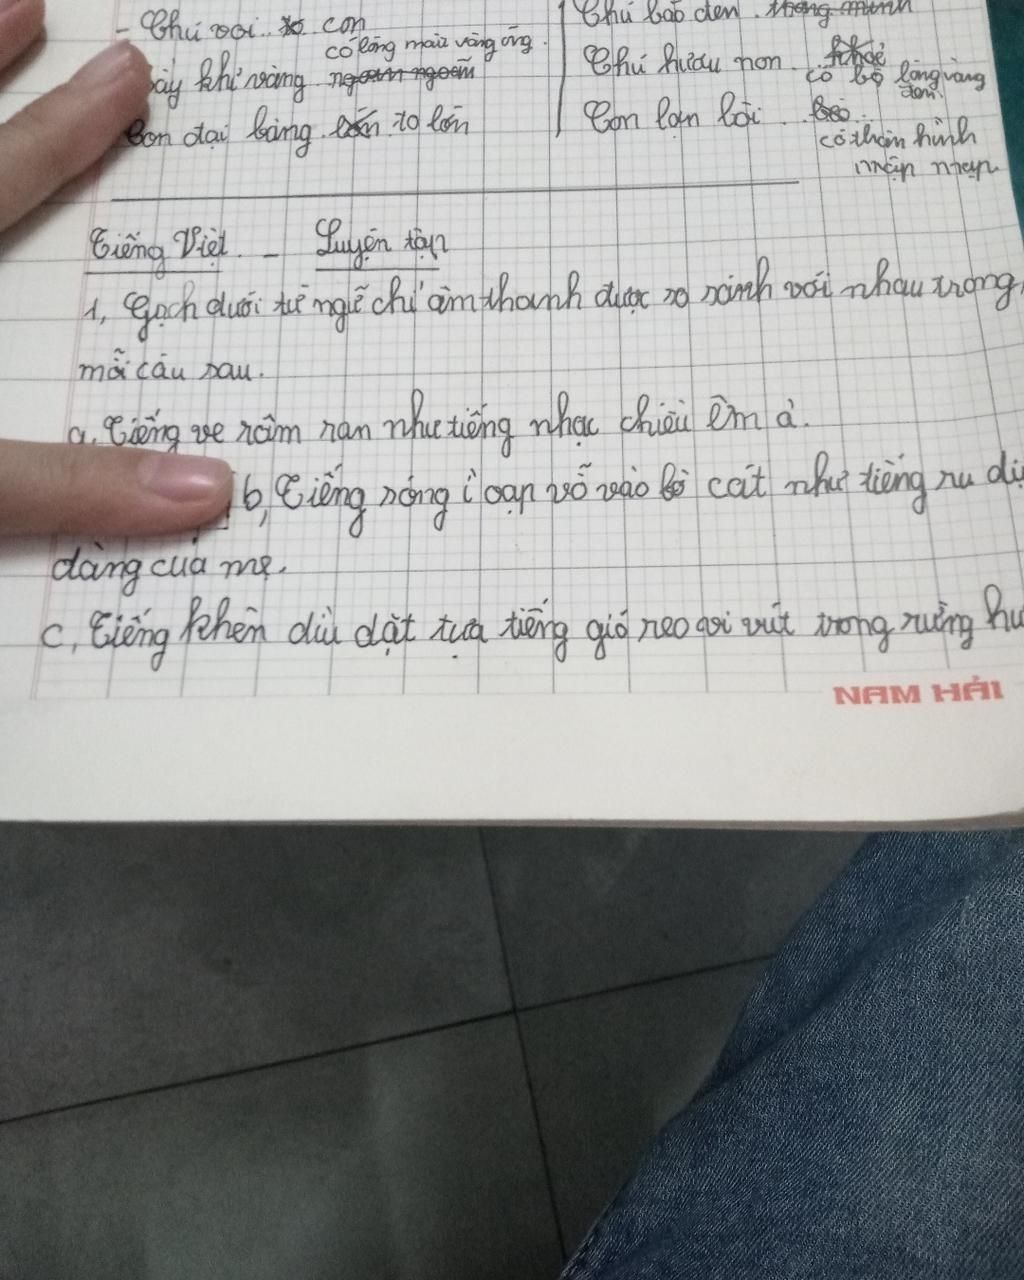 - Chú voi con
có lông màu vàng óng.
bầy khỉ vàng
Con đại bàng to lớn
Chú báo đen.
Chú hươu non có bộ lông vàng
đen.
Con lợn lòi.
có thân hình
mập mạp
Tiếng Việt. - Luyện tập
1, Gạch dưới từ ngữ chỉ âm thanh được so sánh với nhau trong
mỗi câu sau.
a, Tiếng ve râm ran như tiếng nhạc chiều êm ả.
b, Tiếng sóng ì oạp vỗ vào bờ cát như tiếng ru dịu
dàng của mẹ.
c, Tiếng khèn dìu dặt tựa tiếng gió reo vi vút trong rừng
NAM HẢI